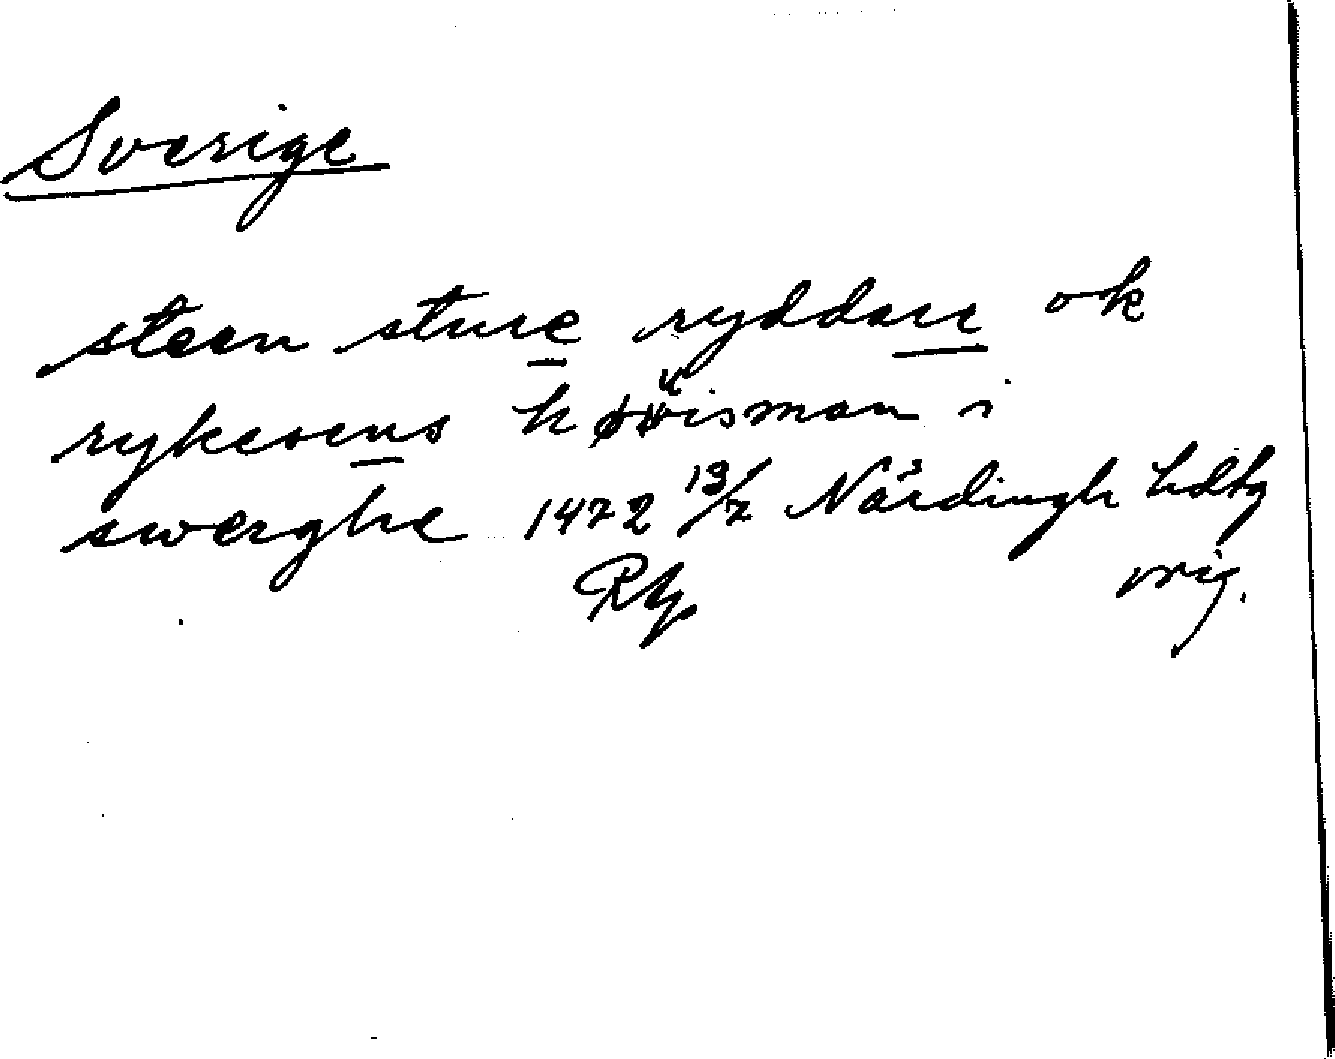 Sverige
steen sture ryddare ok
rykesens høwisman i
swerghe 1472 13/7 Närdingh hdbg
RA orig.